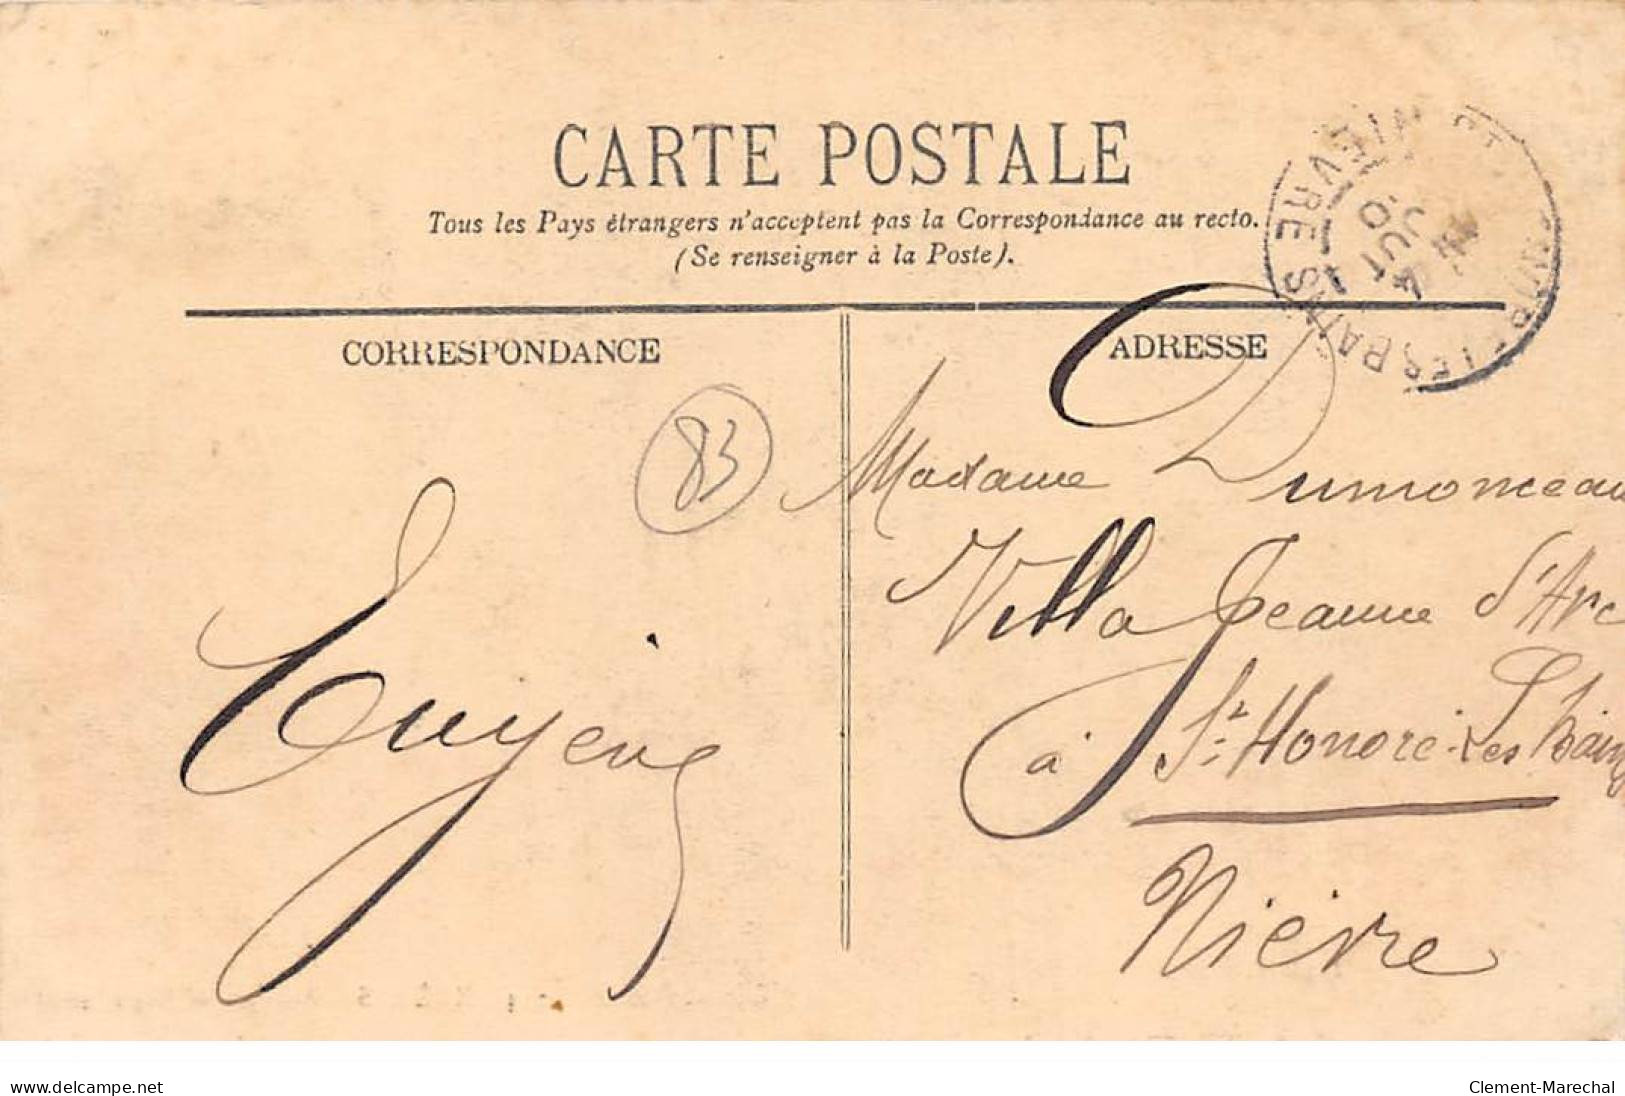 CARTE POSTALE
Tous les Pays étrangers n'acceptent pas la Correspondance au recto.
(Se renseigner à la Poste).
CORRESPONDANCE
ADRESSE
83
Madame Dumonceau
Villa Jeanne d'Arc
à St Honoré-Les Bains
Nièvre
NIEVRE
BAINS
www.delcampe.net
Clement-Marechal